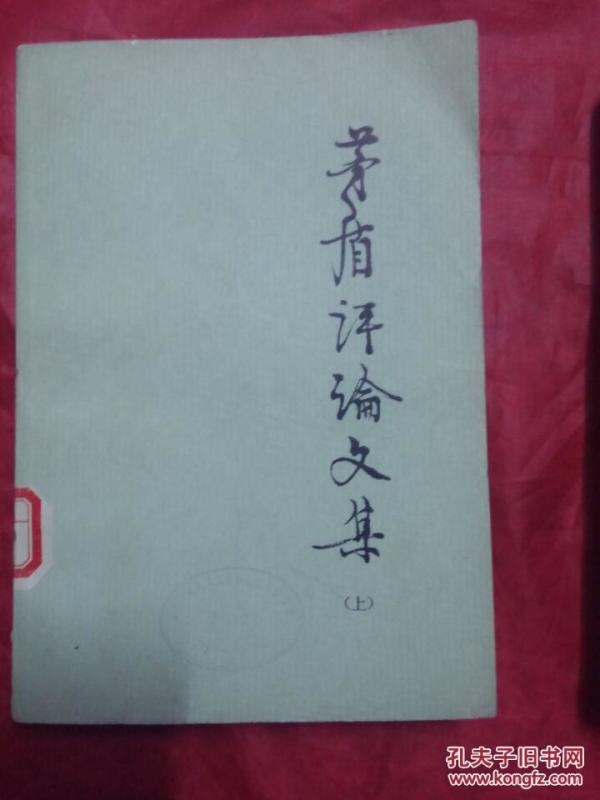 茅盾评论文集
（上）
孔夫子旧书网
www.kongfz.com